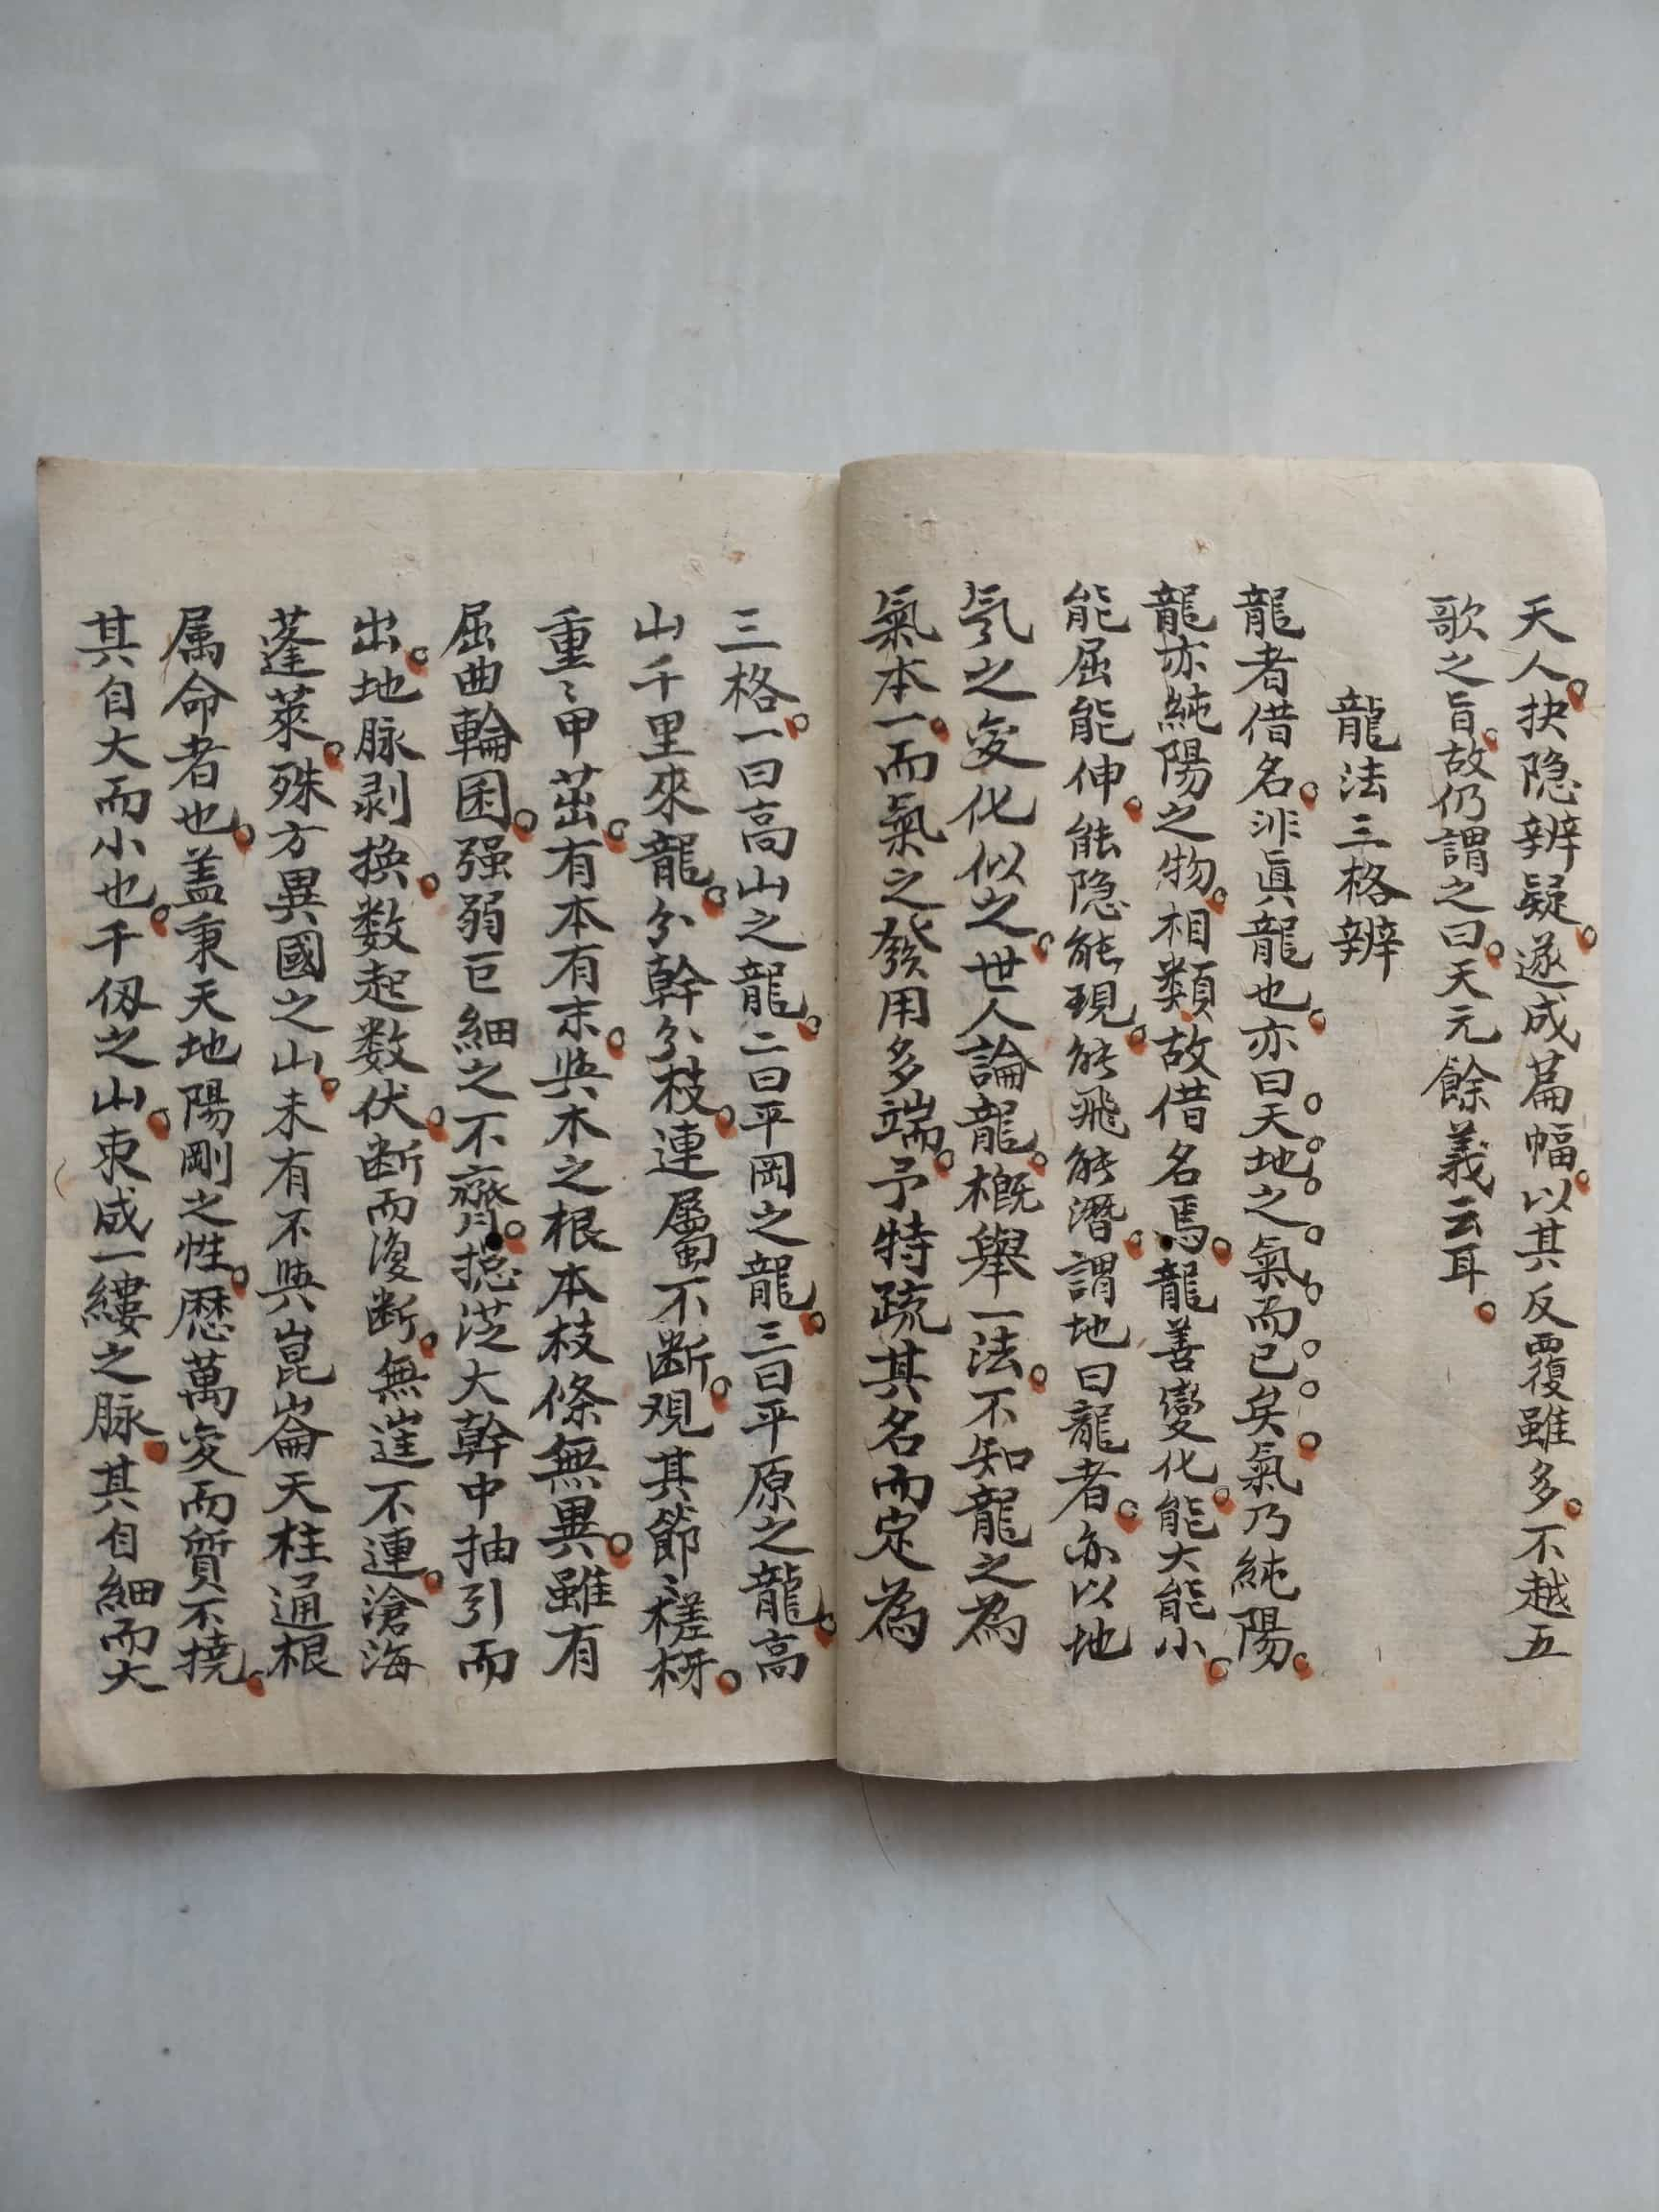 天人。抉隐辨疑。遂成篇幅。以其反覆雖多。不越五
歌之旨。故仍謂之曰。天元餘義云耳。
龍法三格辨
龍者借名。非真龍也。亦曰天地之氣而已矣。氣乃純陽。
龍亦純陽之物。相類故借名焉。龍善變化。能大能小。
能屈能伸。能隐能現。能飛能潛。謂地曰龍者。亦以地
氕之変化似之。世人論龍。概舉一法。不知龍之為
氣本一。而氣之發用多端。予特疏其名而定為
三格。一曰高山之龍。二曰平岡之龍。三曰平原之龍。高
山千里來龍。分幹分枝。連屬不断。观其節〻槎枒。
重〻甲茁。有本有末。與木之根本枝條無異。雖有
屈曲輪囷。强弱巨細之不齊。揔從大幹中抽引而
出。地脉剥换。数起数伏。断而復断。無崖不連。滄海
蓬萊。殊方異國之山。未有不與崑崙天柱通根
属命者也。盖秉天地陽剛之性。歷萬変而質不撓。
其自大而小也。千仭之山。束成一縷之脉。其自細而大